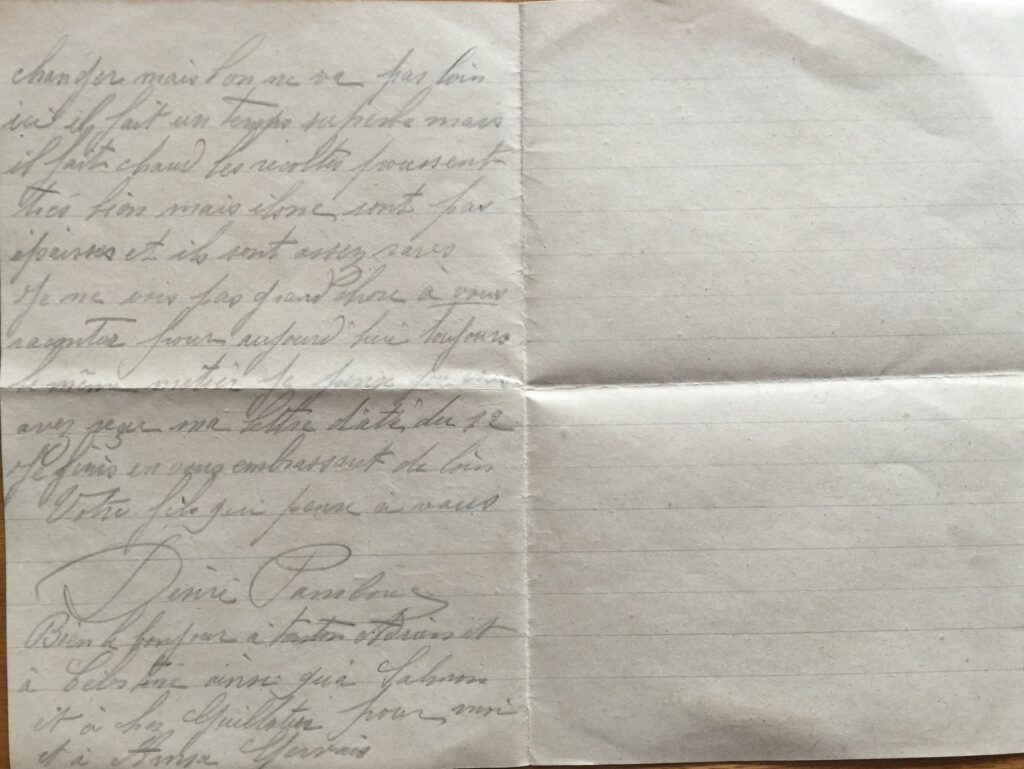 changer mais l'on ne va pas loin
ici il fait un temps superbe mais
il fait chaud les récoltes poussent
trés bien mais ils ne sont pas
épaisses et ils sont assez rares
Je ne vois pas grand chose à vous
raconter pour aujourd'hui toujours
le même métier Je pense que vous
avez reçu ma lettre daté du 12
Je finis en vous embrassant de loin
Votre fils qui pense à vous
Désiré
Bien le bonjour à tonton Adrien et
à Célestine ainsi qu'à
et à chez pour moi
et à Gervais